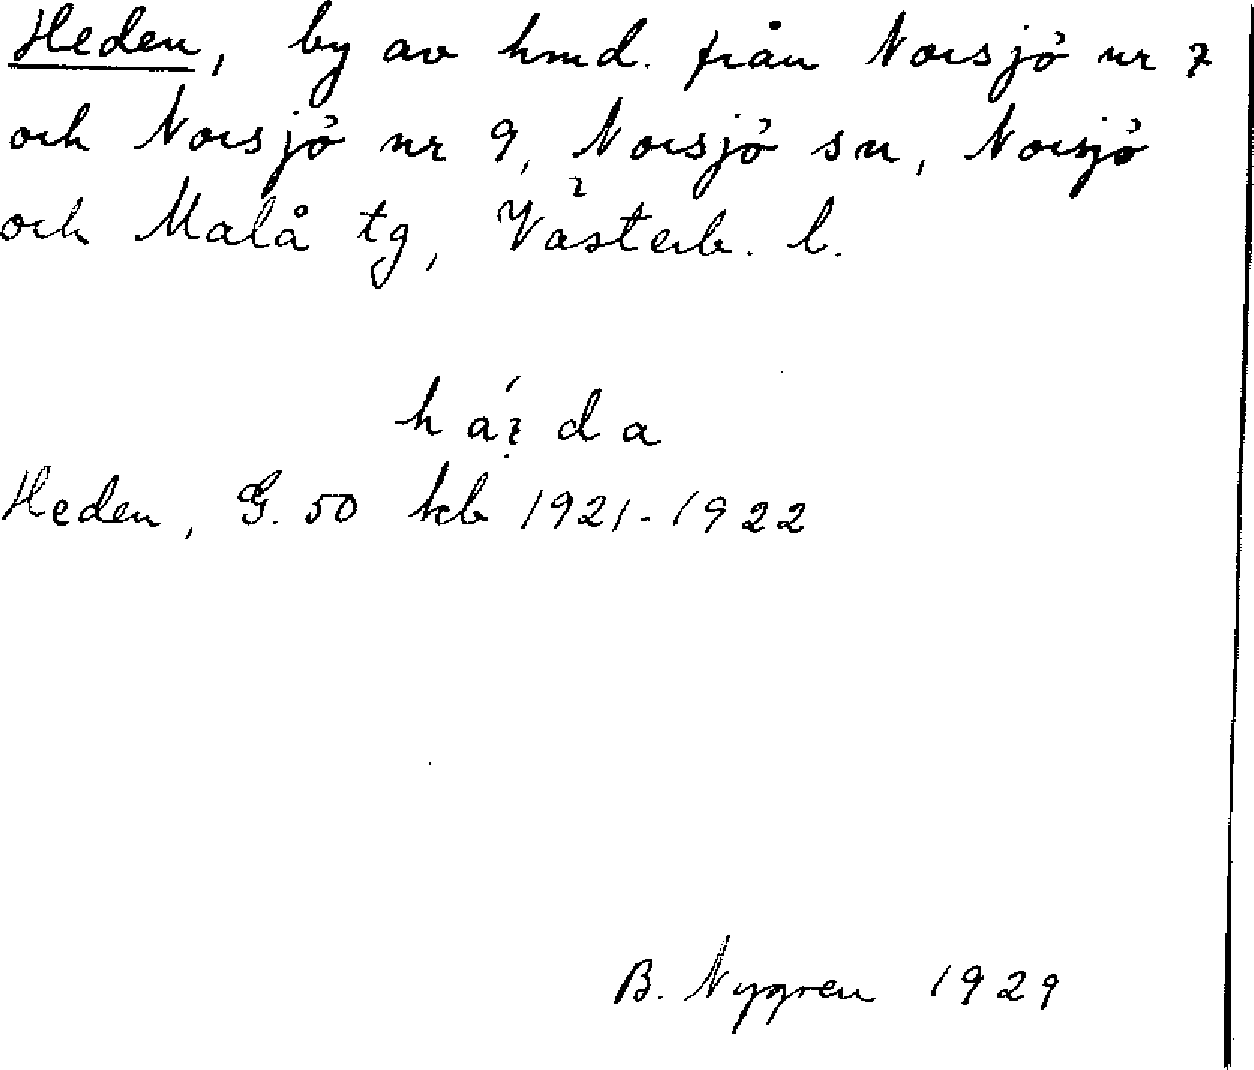 Heden, by av hmd. från Norsjö nr 7
och Norsjö nr 9, Norsjö sn, Norsjö
och Malå tg, Västerb. l.
Heden, G. 50 kb 1921-1922
B. Nygren 1929